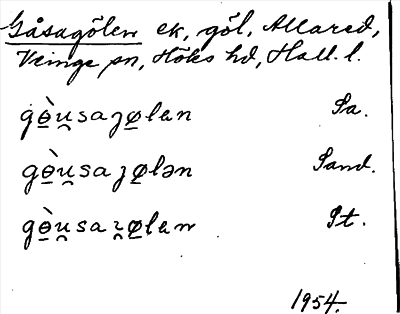 Gåsagölen ek, göl, Allared,
Veinge sn, Höks hd, Hall. l.
gɵ̠̀u̯saɟø̠len Sa.
gɵ̠̀u̯saɟø̠lən Sand.
gɵ̠̀u̯saʐø̠len St.
1954.